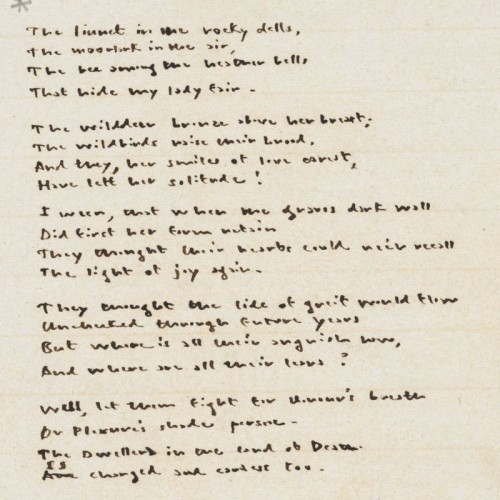 The linnet in the rocky dells,
The moorlark in the air,
The bee among the heather bells
That hide my lady fair -
The wilddeer browze above her breast;
The wildbirds raise their brood,
And they, her smiles of love carest,
Have left her solitude!
I ween, that when the graves dark wall
Did first her form retain
They thought their hearts could ne'er recall
The light of joy again -
They thought the tide of grief would flow
Unchecked through future years
But where is all their anguish now,
And where are all their tears?
Well, let them fight for Honour's breath
Or Pleasure's shade persue -
The Dweller in the land of Death
Is changed and careless too -